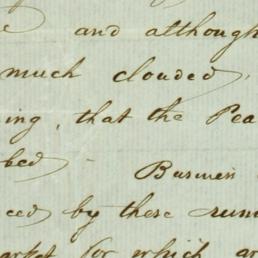 and although
much clouded,
ing, that the Pea
bed - Business
ced by these rum
arket for which ar